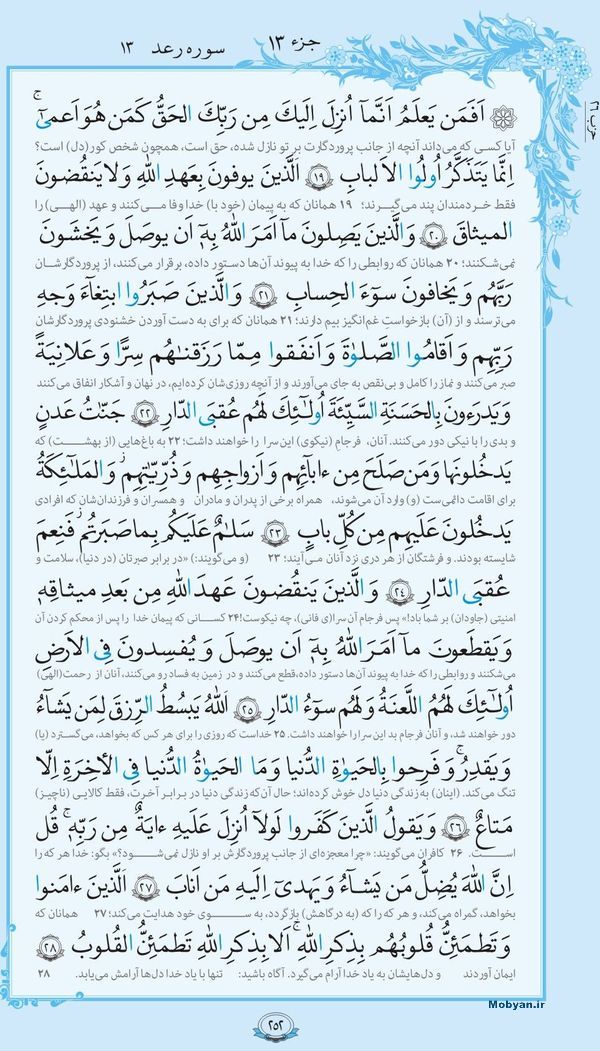 جزء ۱۳
سوره رعد ۱۳
حزب ۲۶
اَفَمَن يَعلَمُ اَنَّمآ اُنزِلَ اِلَيكَ مِن رَبِّكَ الحَقُّ كَمَن هُوَ اَعمىٰٓ ۚ
آیا کسی که می‌داند آنچه از جانب پروردگارت بر تو نازل شده، حق است، همچون شخص کور(دل) است؟
اِنَّما يَتَذَكَّرُ اُولُوا الاَلبابِ ۱۹ اَلَّذينَ يوفونَ بِعَهدِ اللهِ وَلا يَنقُضونَ
فقط خردمندان پند می‌گیرند؛ ۱۹ همانان که به پیمان (خود با) خدا وفا می‌کنند و عهد (الهی) را
الميثاقَ ۲۰ وَالَّذينَ يَصِلونَ مآ اَمَرَ اللهُ بِهٖٓ اَن يوصَلَ وَ يَخشَونَ
نمی‌شکنند؛ ۲۰ همانان که روابطی را که خدا به پیوند آن‌ها دستور داده، برقرار می‌کنند، از پروردگارشان
رَبَّهُم وَ يَخافونَ سوٓءَ الحِسابِ ۲۱ وَالَّذينَ صَبَرُوا ابتِغآءَ وَجهِ
می‌ترسند و از (آن) بازخواستِ غم‌انگیز بیم دارند؛ ۲۱ همانان که برای به دست آوردن خشنودی پروردگارشان
رَبِّهِم وَ اَقامُوا الصَّلوٰةَ وَ اَنفَقوا مِمّا رَزَقنٰهُم سِرًّا وَ عَلانِيَةً
صبر می‌کنند و نماز را کامل و بی‌نقص به جای می‌آورند و از آنچه روزی‌شان کرده‌ایم، در نهان و آشکار انفاق می‌کنند
وَ يَدرَءونَ بِالحَسَنَةِ السَّيِّئَةَ اُولٰٓئِكَ لَهُم عُقبَى الدّارِ ۲۲ جَنّٰتُ عَدنٍ
و بدی را با نیکی دور می‌کنند. آنان، فرجامِ (نیکوی) این سرا را خواهند داشت؛ ۲۲ به باغ‌هایی (از بهشت) که
يَدخُلونَها وَ مَن صَلَحَ مِن ءابآئِهِم وَ اَزواجِهِم وَ ذُرِّيّٰتِهِم ۖ وَالمَلٰٓئِكَةُ
برای اقامت دائمی‌ست (و) وارد آن می‌شوند، همراه برخی از پدران و مادران و همسران و فرزندان‌شان که افرادی
يَدخُلونَ عَلَيهِم مِن كُلِّ بابٍ ۲۳ سَلٰمٌ عَلَيكُم بِما صَبَرتُم ۚ فَنِعمَ
شایسته بودند. و فرشتگان از هر دری نزد آنان می‌آیند؛ ۲۳ (و می‌گویند:) «در برابر صبرتان (در دنیا)، سلامت و
عُقبَى الدّارِ ۲۴ وَالَّذينَ يَنقُضونَ عَهدَ اللهِ مِن بَعدِ ميثاقِهٖ
امنیتی (جاودان) بر شما باد!» پس فرجام آن سرا(ی فانی)، چه نیکوست! ۲۴ کسانی که پیمان خدا را پس از محکم کردن آن
وَ يَقطَعونَ مآ اَمَرَ اللهُ بِهٖٓ اَن يوصَلَ وَ يُفسِدونَ فِى الاَرضِ
می‌شکنند و روابطی را که خدا به پیوند آن‌ها دستور داده، قطع می‌کنند و در زمین به فساد رو می‌کنند، آنان از رحمت (الهی)
اُولٰٓئِكَ لَهُمُ اللَّعنَةُ وَ لَهُم سوٓءُ الدّارِ ۲۵ اَللهُ يَبسُطُ الرِّزقَ لِمَن يَشآءُ
دور خواهند شد، و آنان فرجام بد این سرا را خواهند داشت. ۲۵ خداست که روزی را برای هر کس که بخواهد، می‌گسترد (یا)
وَ يَقدِرُ ۚ وَ فَرِحوا بِالحَيوٰةِ الدُّنيا وَ مَا الحَيوٰةُ الدُّنيا فِى الأخِرَةِ اِلّا
تنگ می‌کند. (اینان) به زندگی دنیا دل خوش کرده‌اند؛ حال آن که زندگی دنیا در برابر آخرت، فقط کالایی (ناچیز)
مَتاعٌ ۲۶ وَ يَقولُ الَّذينَ كَفَروا لَولآ اُنزِلَ عَلَيهِ ءايَةٌ مِن رَبِّهٖ ۗ قُل
است. ۲۶ کافران می‌گویند: «چرا معجزه‌ای از جانب پروردگارش بر او نازل نمی‌شود؟» بگو: خدا هر که را
اِنَّ اللهَ يُضِلُّ مَن يَشآءُ وَ يَهدىٓ اِلَيهِ مَن اَنابَ ۲۷ اَلَّذينَ ءامَنوا
بخواهد، گمراه می‌کند، و هر که را که (به درگاهش) بازگردد، به سوی خود هدایت می‌کند؛ ۲۷ همانان که
وَ تَطمَئِنُّ قُلوبُهُم بِذِكرِ اللهِ ۗ اَلا بِذِكرِ اللهِ تَطمَئِنُّ القُلوبُ ۲۸
ایمان آوردند و دل‌هایشان به یاد خدا آرام می‌گیرد. آگاه باشید: تنها با یاد خدا دل‌ها آرامش می‌یابد. ۲۸
Mobyan.ir
۲۵۲